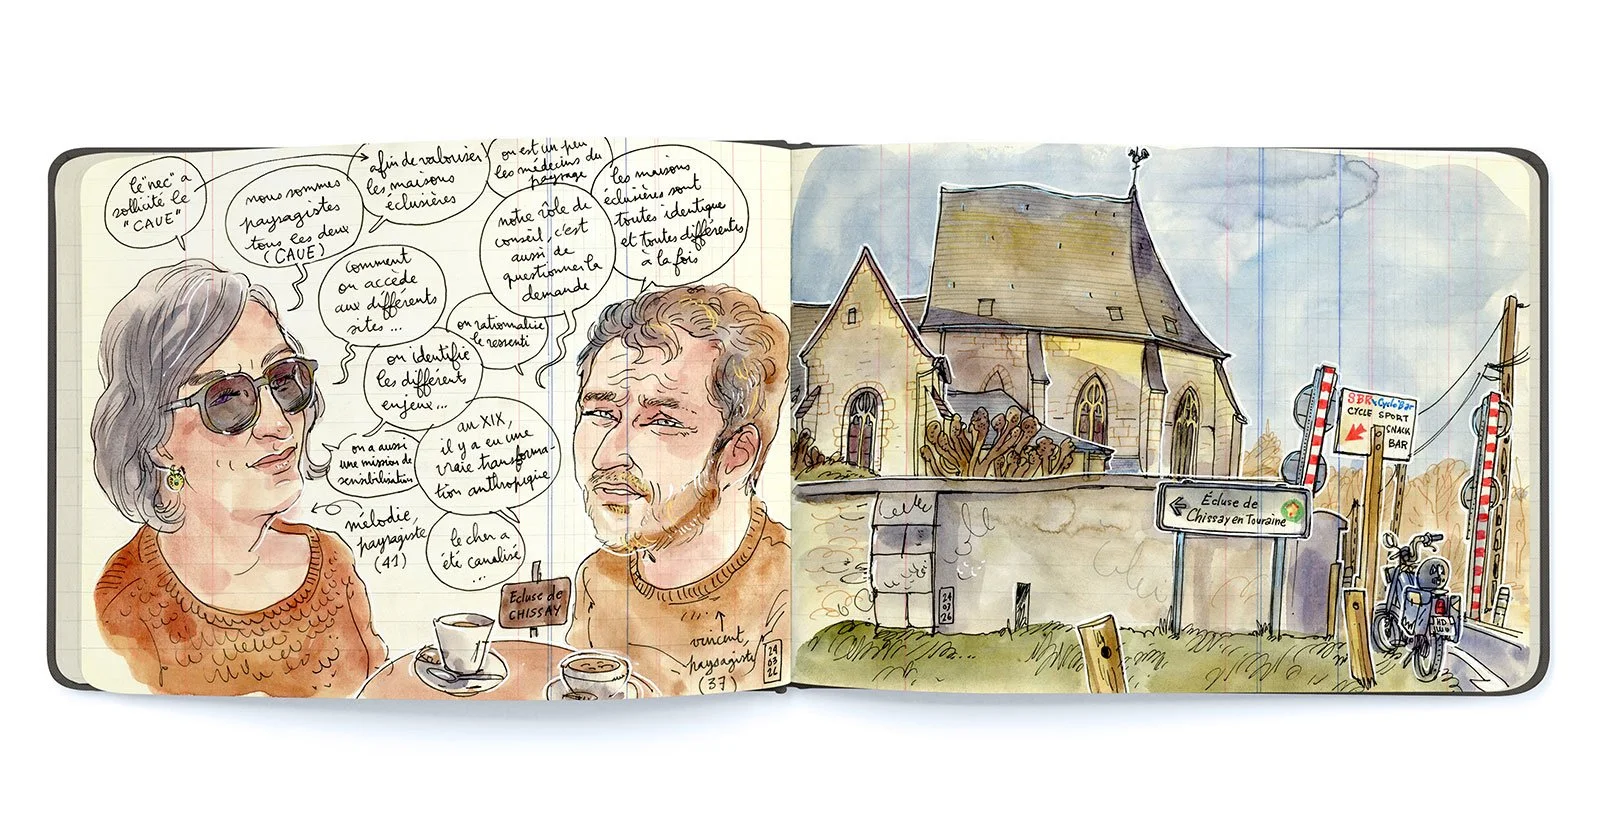 le "nec" a
sollicité le
"CAUE"
nous sommes
paysagistes
tous les deux
(CAUE)
afin de valoriser
les maisons
éclusières
on est un peu
les médecins du
paysage
les maisons
éclusières sont
toutes identique
et toutes différentes
à la fois
notre rôle de
conseil, c'est
aussi de
questionner la
demande
comment
on accède
aux différents
sites ...
on rationnalise
le ressenti
on identifie
les différents
enjeux ...
on a aussi
une mission de
sensibilisation
au XIX,
il y a eu une
vraie transforma-
tion anthropique
mélodie
paysagiste
(41)
le cher a
été canalisé
...
Écluse de
CHISSAY
vincent,
paysagiste
(37)
24
03
26
SBR Cyclo'Bar
CYCLE SPORT
SNACK
BAR
Écluse de
Chissay en Touraine
24
03
26